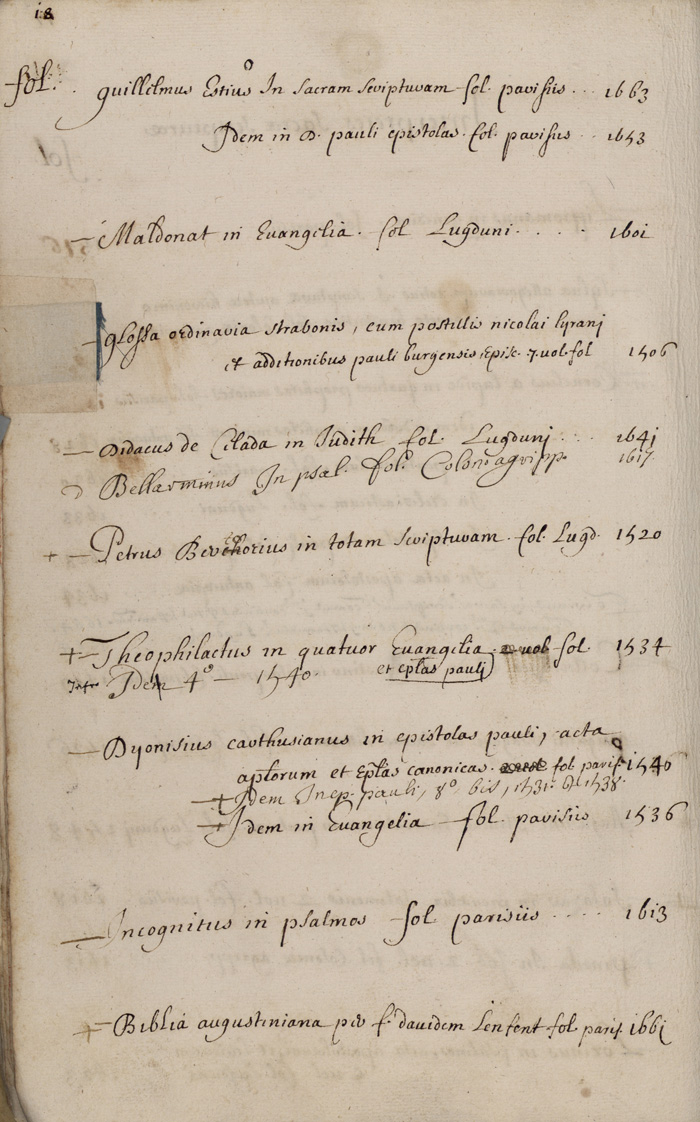 18
fol. guillelmus Estius In sacram scripturam fol. parisiis ... 1663
Idem in D. pauli epistolas. fol. parisius .. 1653
Maldonat in Evangelia. fol Lugduni. . . . . 1601
glossa ordinaria strabonis, cum postillis nicolai lyranj
et additionibus pauli burgensis, Episc. 7. vol. fol 1506
Didacus de Celada in Judith fol. Lugdunj ... 1641
Bellarminus In psal. fol. Coloniæ agripp. 1617.
+ Petrus Berchorius in totam scripturam. fol. Lugd. 1520
+ Theophilactus in quatuor Evangelia. 2 vol fol. 1534
et eplas pauli
Idem 4° — 1540.
Dyonisius carthusianus in epistolas pauli, acta
aplorum et Eplas canonicas. fol paris. 1540
+ Idem In ep. pauli, 8°. bis, 1531. et 1538.
+ Idem in Evangelia fol. parisiis 1536
Incognitus in psalmos fol parisiis .... 1613
+ Biblia augustiniana per f. davidem Lenfent fol paris. 1661